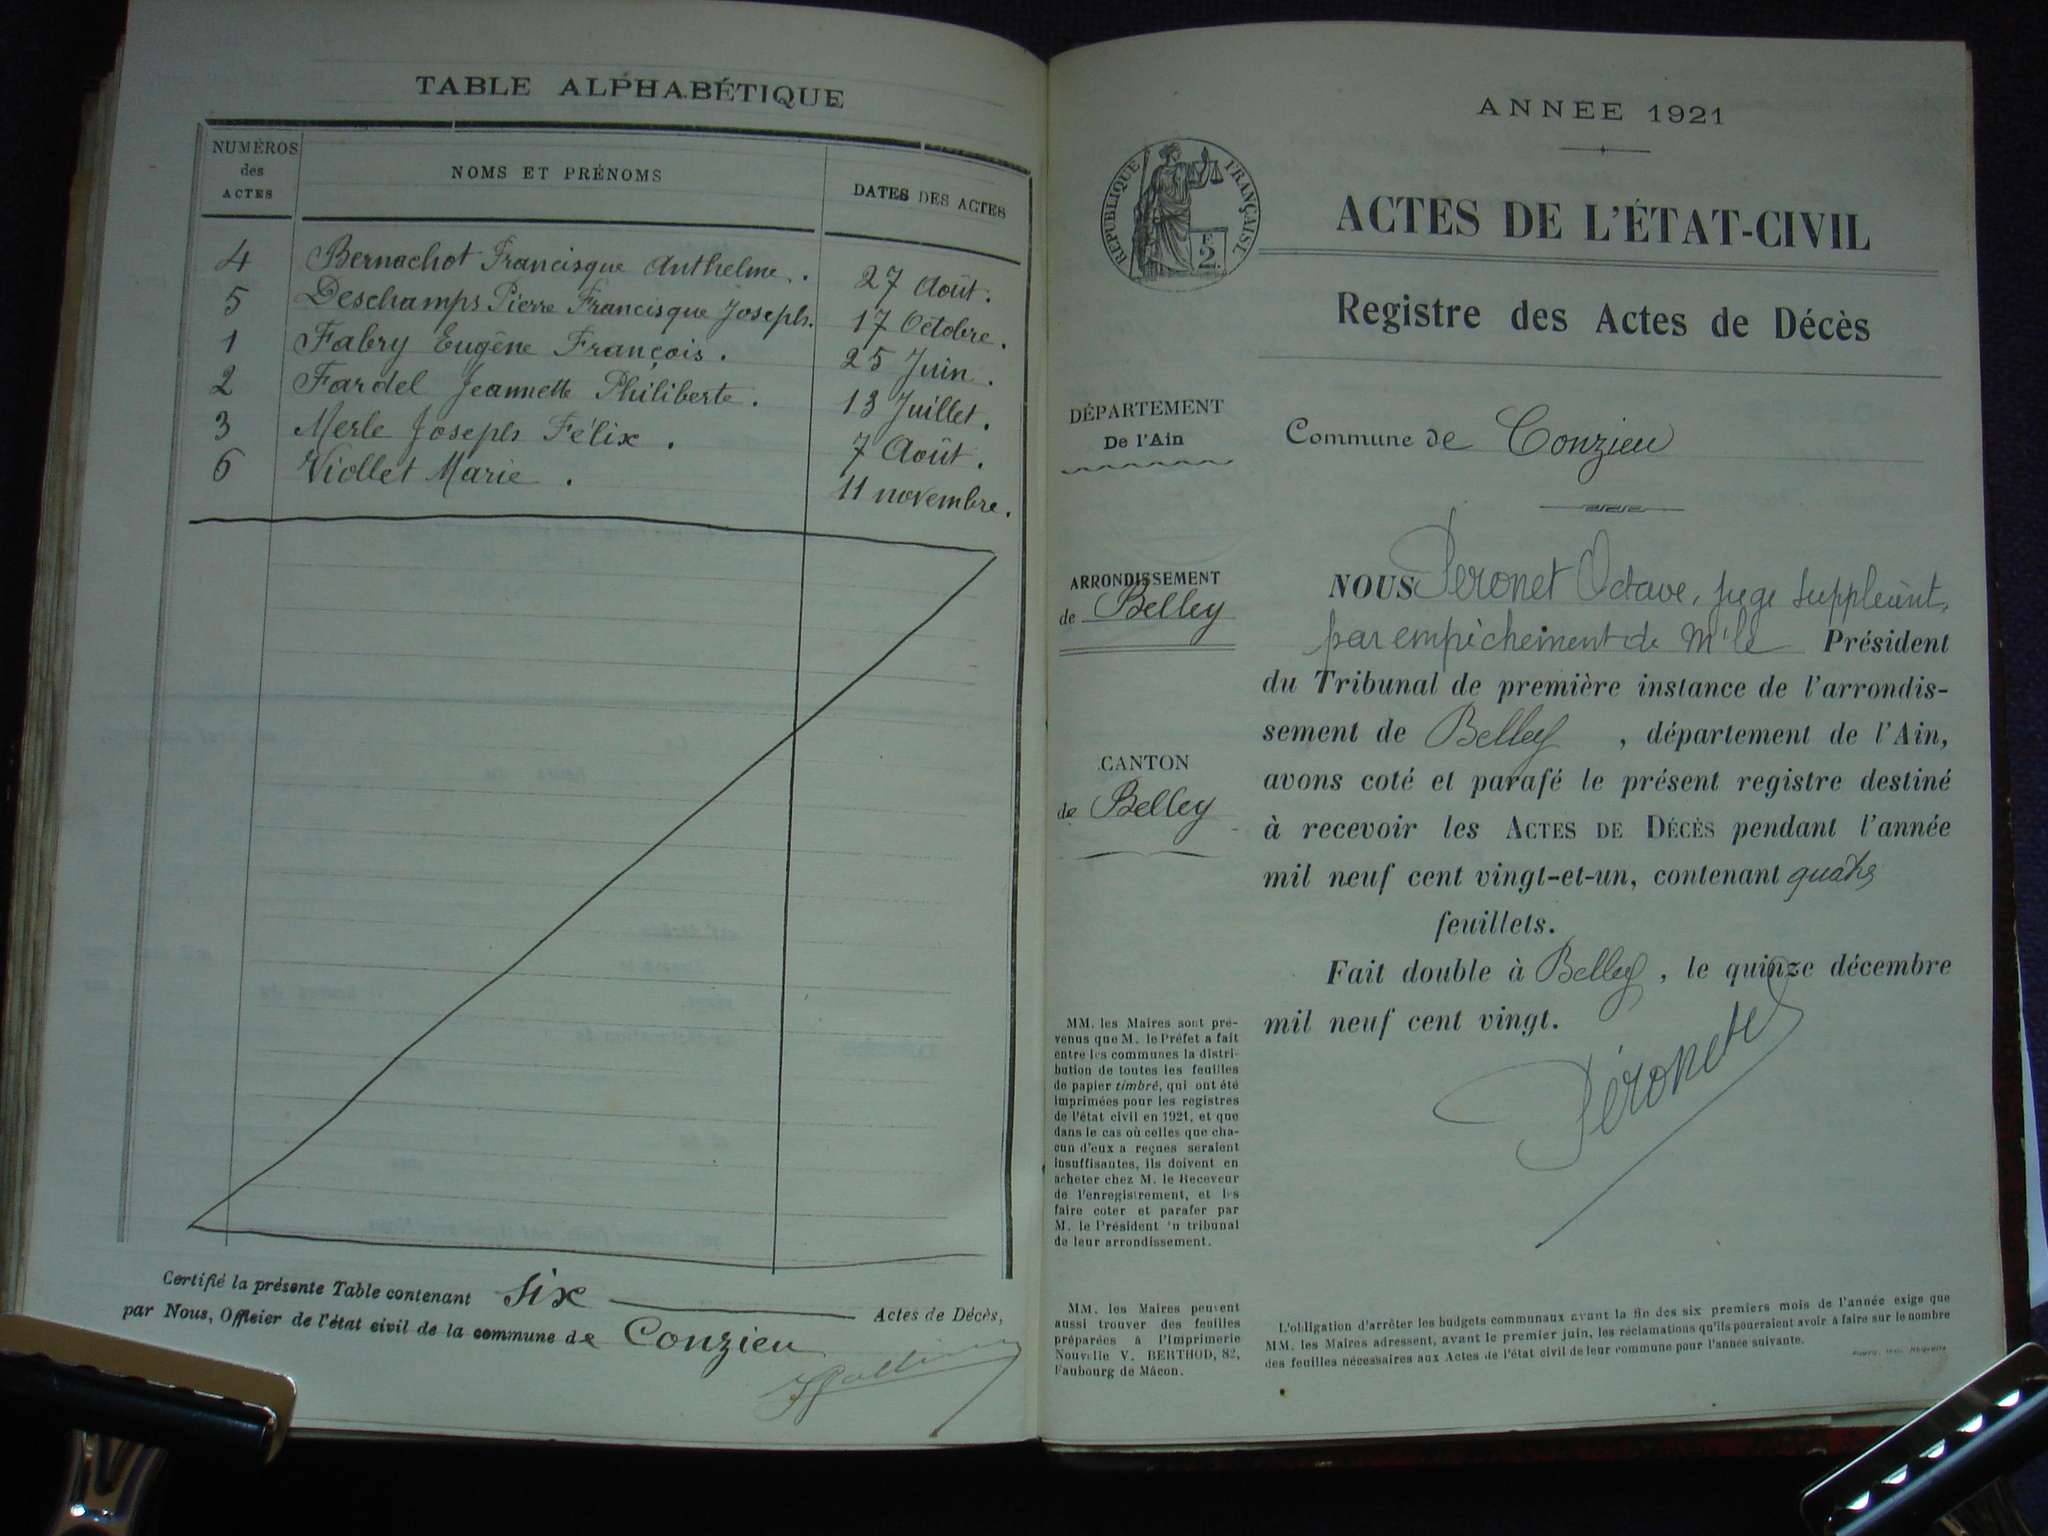 TABLE ALPHABÉTIQUE
NUMÉROS des ACTES
NOMS ET PRÉNOMS
DATES DES ACTES
4 Bernachot Francisque Anthelme. 27 Août.
5 Deschamps Pierre Francisque Joseph. 17 Octobre.
1 Fabry Eugène François. 25 Juin.
2 Fardel Jeannette Philiberte. 13 Juillet.
3 Merle Joseph Félix. 7 Août.
6 Viollet Marie. 11 novembre.
Certifié la présente Table contenant Six Actes de Décès,
par Nous, Officier de l'état civil de la commune de Conzieu
ANNEE 1921
RÉPUBLIQUE FRANÇAISE
F. 2
ACTES DE L'ÉTAT-CIVIL
Registre des Actes de Décès
DÉPARTEMENT
De l'Ain
Commune de Conzieu
ARRONDISSEMENT
de Belley
CANTON
de Belley
NOUS Peronet Octave, juge suppléant,
par empêchement de Mr le Président
du Tribunal de première instance de l'arrondis-
sement de Belley, département de l'Ain,
avons coté et parafé le présent registre destiné
à recevoir les ACTES DE DÉCÈS pendant l'année
mil neuf cent vingt-et-un, contenant quatre
feuillets.
Fait double à Belley, le quinze décembre
mil neuf cent vingt.
Péronet
MM. les Maires sont pré-
venus que M. le Préfet a fait
entre les communes la distri-
bution de toutes les feuilles
de papier timbré, qui ont été
imprimées pour les registres
de l'état civil en 1921, et que
dans le cas où celles que cha-
cun d'eux a reçues seraient
insuffisantes, ils doivent en
acheter chez M. le Receveur
de l'enregistrement, et les
faire coter et parafer par
M. le Président 'u tribunal
de leur arrondissement.
MM. les Maires peuvent
aussi trouver des feuilles
préparées à l'Imprimerie
Nouvelle V. BERTHOD, 82,
Faubourg de Mâcon.
L'obligation d'arrêter les budgets communaux avant la fin des six premiers mois de l'année exige que
MM. les Maires adressent, avant le premier juin, les réclamations qu'ils pourraient avoir à faire sur le nombre
des feuilles nécessaires aux Actes de l'état civil de leur commune pour l'année suivante.